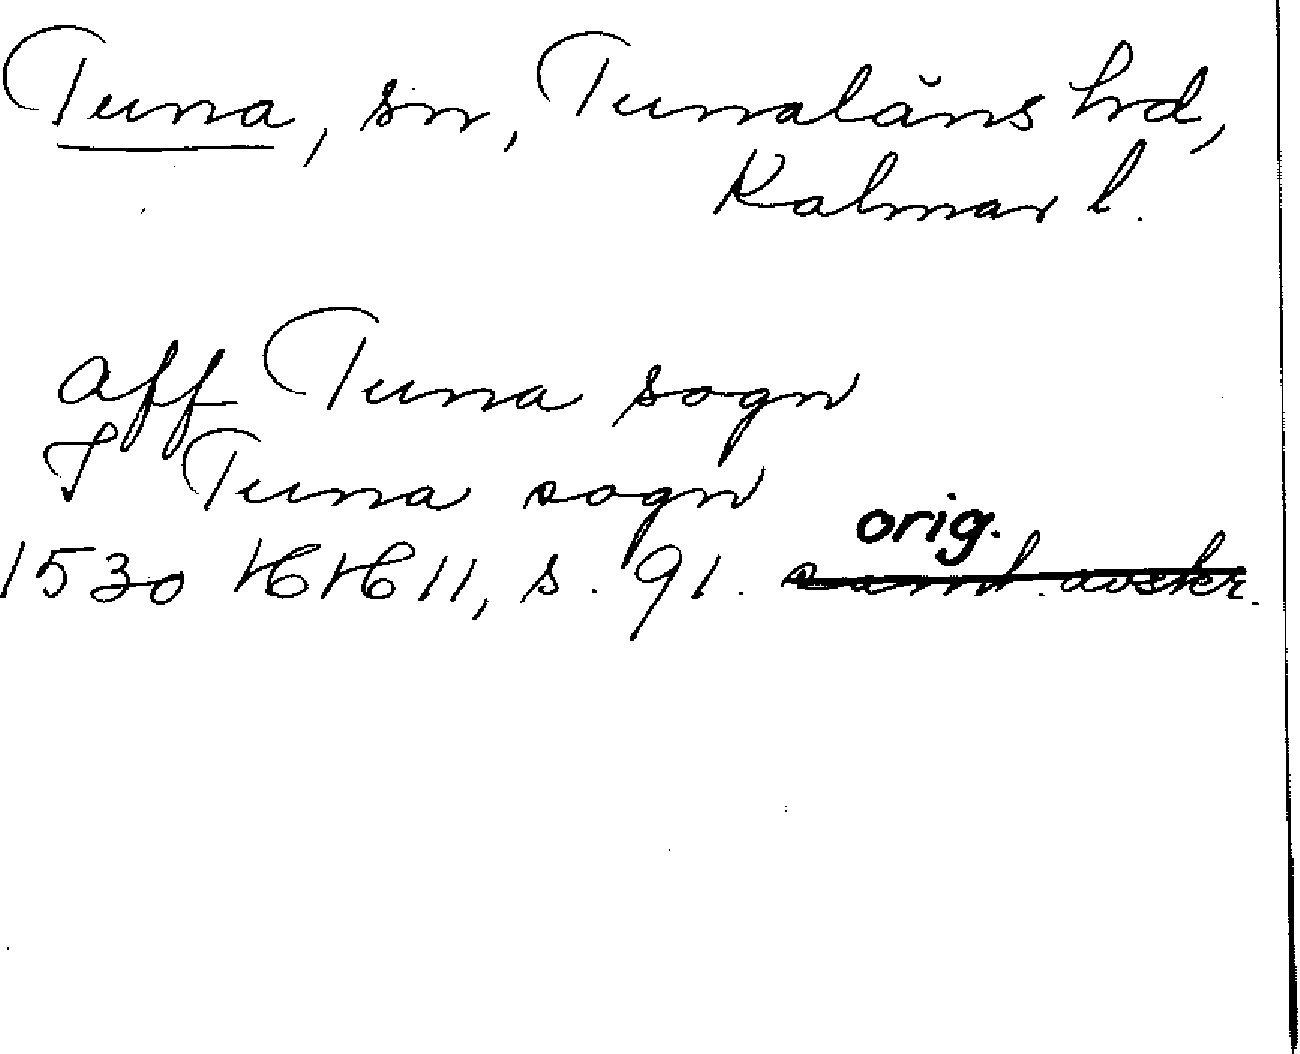 Tuna, sn, Tunaläns hd,
Kalmar l.
aff Tuna sogn
J Tuna sogn
orig.
1530 HH 11, s. 91. samt. avskr.